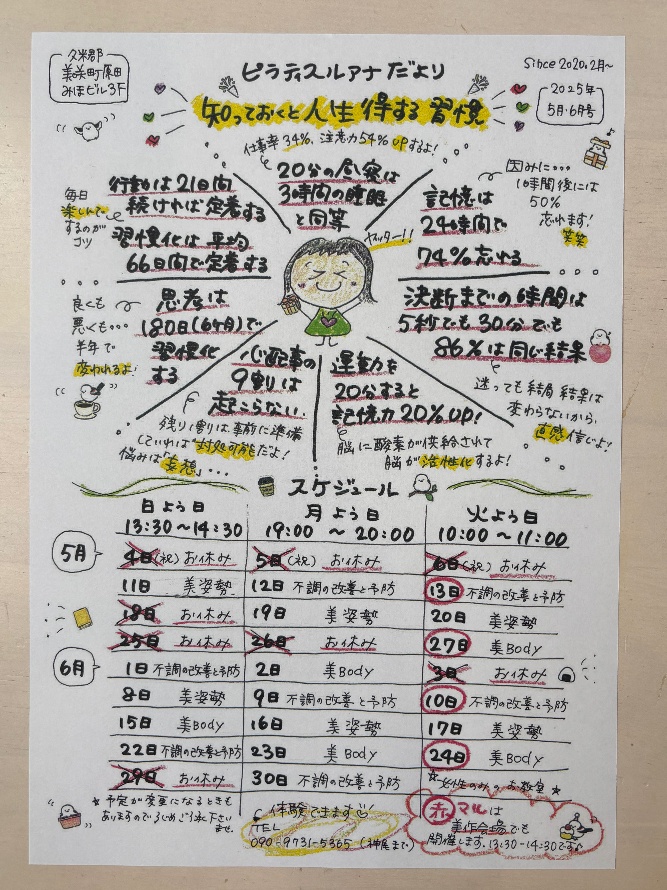 久米郡
美咲町原田
みほビル3F
ピラティスルアナだより
Since 2020.2月~
2025年
5月・6月号
知っておくと人生得する習慣
仕事率34%、注意力54%UPするよ!
20分の昼寝は
3時間の睡眠
と同等
行動は21日間
続ければ定着する
習慣化は平均
66日間で定着する
毎日
楽しんで
するのが
コツ
記憶は
24時間で
74%忘れる
因みに…
1時間後には
50%
忘れます!
笑笑
ヤッター!!
思考は
180日(6ヶ月)で
習慣化
する
良くも
悪くも…
半年で
変われるよ!
決断までの時間は
5秒でも30分でも
86%は同じ結果
迷っても結局結果は
変わらないから、
直感信じよ!
心配事の
9割は
起こらない
残り1割は、事前に準備
していれば"対処可能だよ!
悩みは"妄想"…
運動を
20分すると
記憶力20%UP!
脳に酸素が供給されて
脳が活性化するよ!
スケジュール
日よう日 月よう日 火よう日
13:30~14:30 19:00 ~ 20:00 10:00~11:00
5月
4日(祝) お休み 5日(祝) お休み 6日(祝) お休み
11日 美姿勢 12日 不調の改善と予防 13日 不調の改善と予防
18日 お休み 19日 美姿勢 20日 美姿勢
25日 お休み 26日 お休み 27日 美Body
6月
1日 不調の改善と予防 2日 美Body 3日 お休み
8日 美姿勢 9日 不調の改善と予防 10日 不調の改善と予防
15日 美Body 16日 美姿勢 17日 美姿勢
22日 不調の改善と予防 23日 美Body 24日 美Body
29日 お休み 30日 不調の改善と予防 ☆女性のみのお教室☆
★予定が変更になるときも
ありますのであらかじめご了承下さい
ませ。
体験できます♡
TEL
090-9731-5365 (神尾まで)
赤マルは
美作会場でも
開催します。13:30~14:30です♪